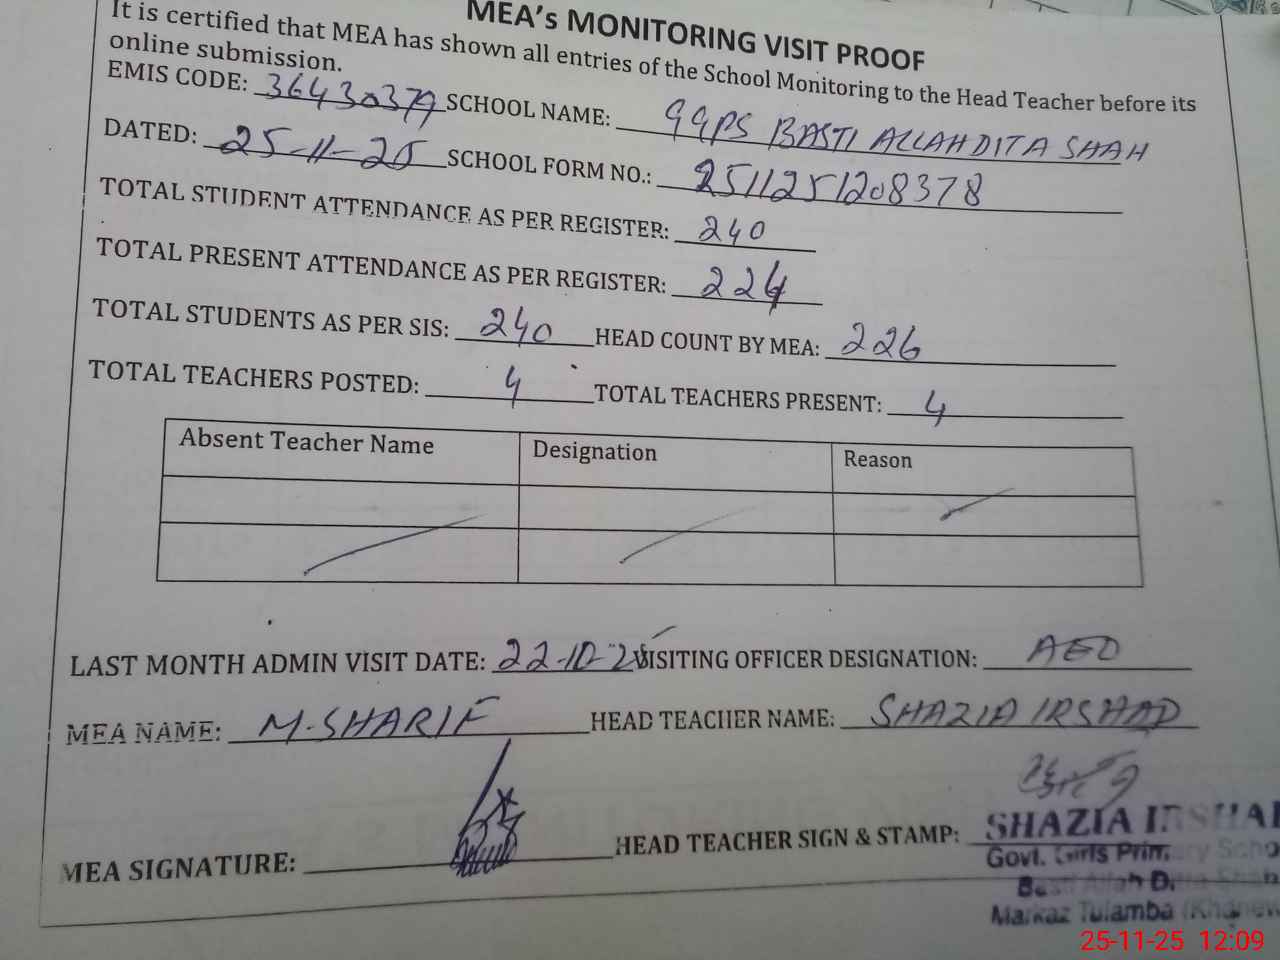 MEA's MONITORING VISIT PROOF
It is certified that MEA has shown all entries of the School Monitoring to the Head Teacher before its
online submission.
EMIS CODE: 36430379 SCHOOL NAME: GGPS BASTI ALLAH DITA SHAH
DATED: 25-11-25 SCHOOL FORM NO.: 2511251208378
TOTAL STUDENT ATTENDANCE AS PER REGISTER: 240
TOTAL PRESENT ATTENDANCE AS PER REGISTER:
TOTAL STUDENTS AS PER SIS: 240 HEAD COUNT BY MEA: 226
TOTAL TEACHERS POSTED: 4 TOTAL TEACHERS PRESENT: 4
Absent Teacher Name Designation Reason
LAST MONTH ADMIN VISIT DATE: 22-10-25 VISITING OFFICER DESIGNATION: AEO
MEA NAME: M. SHARIF HEAD TEACHER NAME: SHAZIA IRSHAD
MEA SIGNATURE: HEAD TEACHER SIGN & STAMP:
SHAZIA IRSHA
Govt. Girls Primary Scho
Basti Allah Ditta Shah
Markaz Tulamba (Khanew
25-11-25 12:09